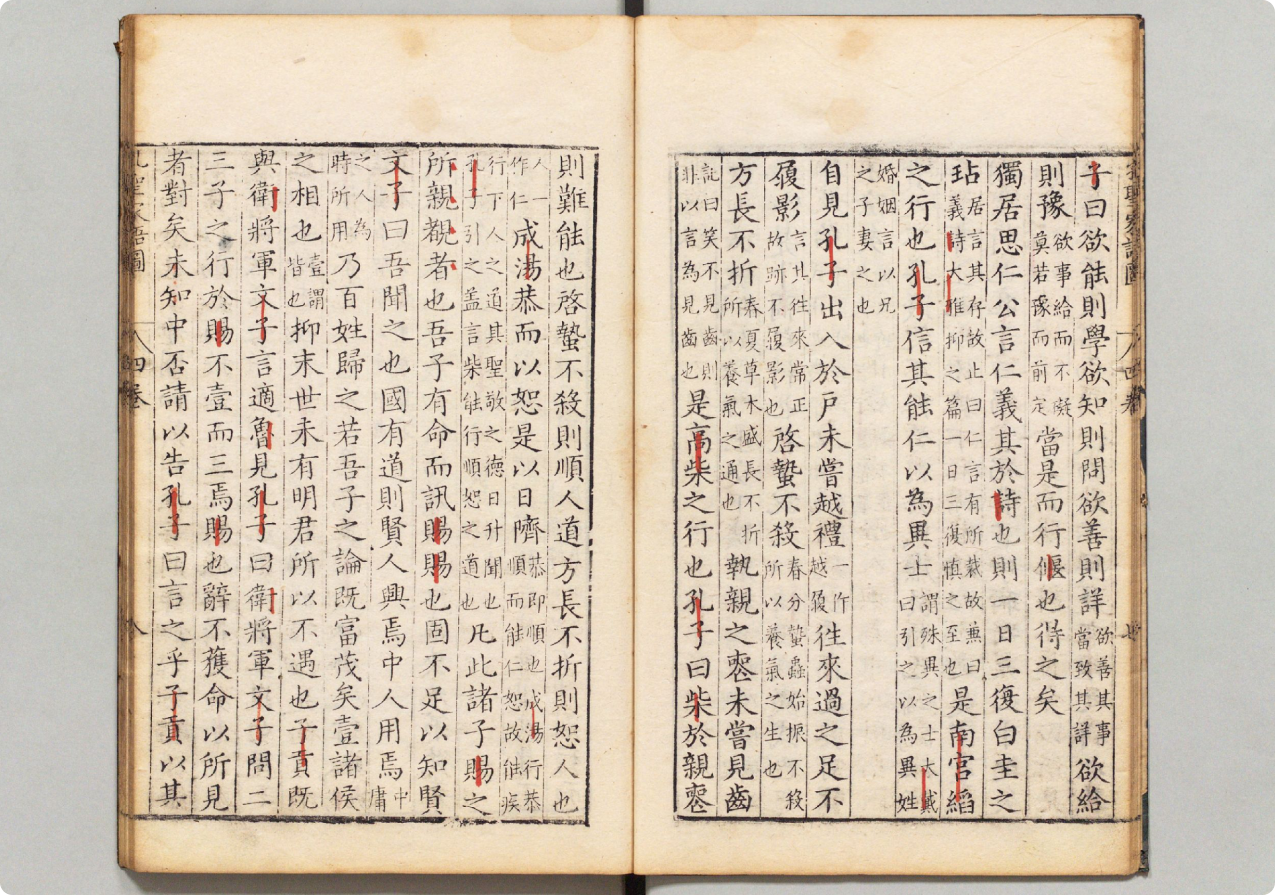 子曰欲能則學欲知則問欲善則詳欲善其事當致其詳欲給
則豫欲事給而不礙莫若豫而前定當是而行偃也得之矣
獨居思仁公言仁義其於詩也則一日三復白圭之
玷居言其存故止曰仁言有所裁故兼曰義詩大雅抑之篇一日三復慎之至也是南宮縚
之行也孔子信其能仁以為異士謂殊異之士大戴曰引之以為異姓
婚姻言以兄之子妻之也
自見孔子出入於戶未嘗越禮一作越履往來過之足不
履影言其往來常正故跡不履影也啓蟄不殺春分蟄蟲始振不殺所以養氣之生也
方長不折春夏草木盛長不折所以養氣之通也執親之喪未嘗見齒
記曰笑不見齒則非以言為見齒也是高柴之行也孔子曰柴於親喪
則難能也啓蟄不殺則順人道方長不折則恕人也
人一作仁成湯恭而以恕是以日隮恭即順也成湯行恭順而能仁恕故能疾
行下人之道其聖敬之德日升聞也孔子引之盖言柴能行順恕之道也凡此諸子賜之
所親覩者也吾子有命而訊賜賜也固不足以知賢
文子曰吾聞之也國有道則賢人興焉中人用焉中庸
之人為時所用乃百姓歸之若吾子之論既富茂矣壹諸侯
之相也壹謂皆也抑末世未有明君所以不遇也子貢既
與衛將軍文子言適魯見孔子曰衛將軍文子問二
三子之行於賜不壹而三焉賜也辭不獲命以所見
者對矣未知中否請以告孔子曰言之乎子貢以其